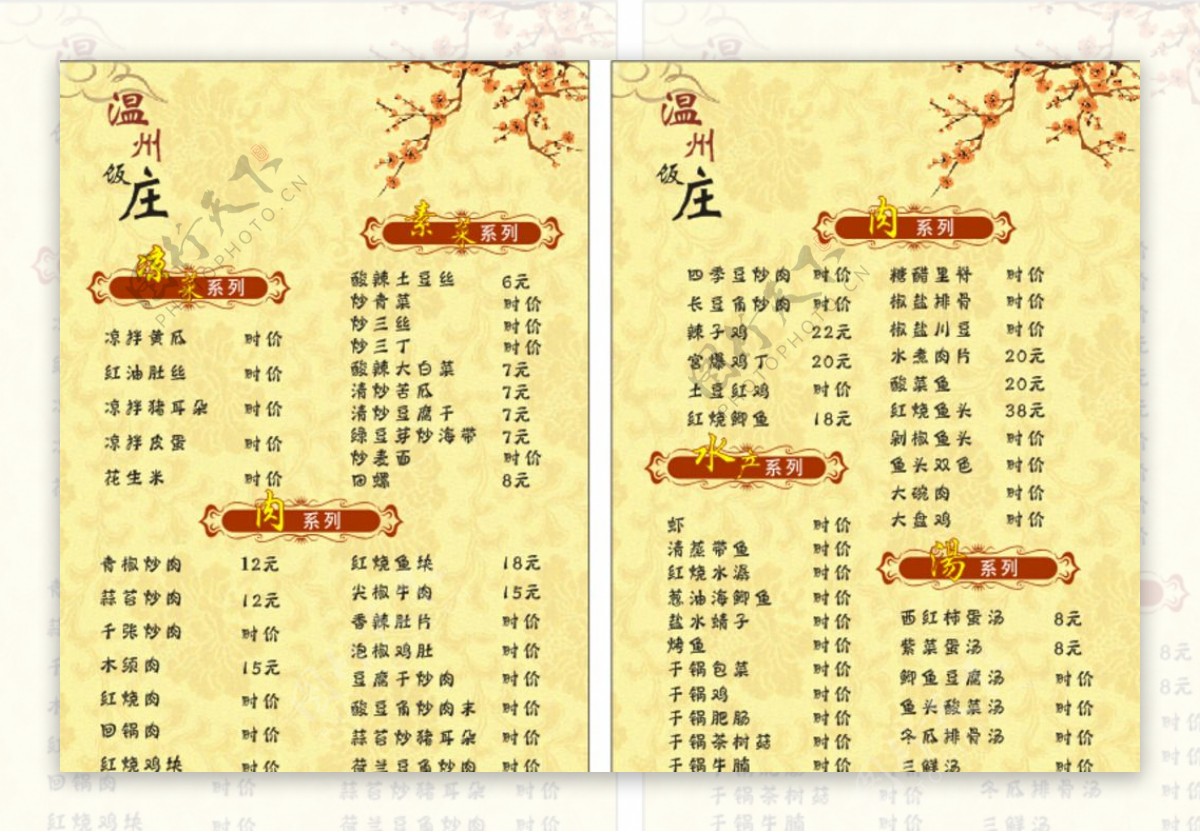 温州饭庄
凉菜系列
凉拌黄瓜 时价
红油肚丝 时价
凉拌猪耳朵 时价
凉拌皮蛋 时价
花生米 时价
素菜系列
酸辣土豆丝 6元
炒青菜 时价
炒三丝 时价
炒三丁 时价
酸辣大白菜 7元
清炒苦瓜 7元
清炒豆腐干 7元
绿豆芽炒海带 7元
炒麦面 时价
田螺 8元
肉系列
青椒炒肉 12元
蒜苔炒肉 12元
千张炒肉 时价
木须肉 15元
红烧肉 时价
回锅肉 时价
红烧鸡块 时价
红烧鱼块 18元
尖椒牛肉 15元
香辣肚片 时价
泡椒鸡肚 时价
豆腐干炒肉 时价
酸豆角炒肉末 时价
蒜苔炒猪耳朵 时价
荷兰豆角炒肉 时价
温州饭庄
肉系列
四季豆炒肉 时价
长豆角炒肉 时价
辣子鸡 22元
宫爆鸡丁 20元
土豆红鸡 时价
红烧鲫鱼 18元
糖醋里脊 时价
椒盐排骨 时价
椒盐川豆 时价
水煮肉片 20元
酸菜鱼 20元
红烧鱼头 38元
剁椒鱼头 时价
鱼头双色 时价
大碗肉 时价
大盘鸡 时价
水产系列
虾 时价
清蒸带鱼 时价
红烧水潺 时价
葱油海鲫鱼 时价
盐水蜻子 时价
烤鱼 时价
干锅包菜 时价
干锅鸡 时价
干锅肥肠 时价
干锅茶树菇 时价
干锅牛腩 时价
汤系列
西红柿蛋汤 8元
紫菜蛋汤 8元
鲫鱼豆腐汤 时价
鱼头酸菜汤 时价
冬瓜排骨汤 时价
三鲜汤 时价